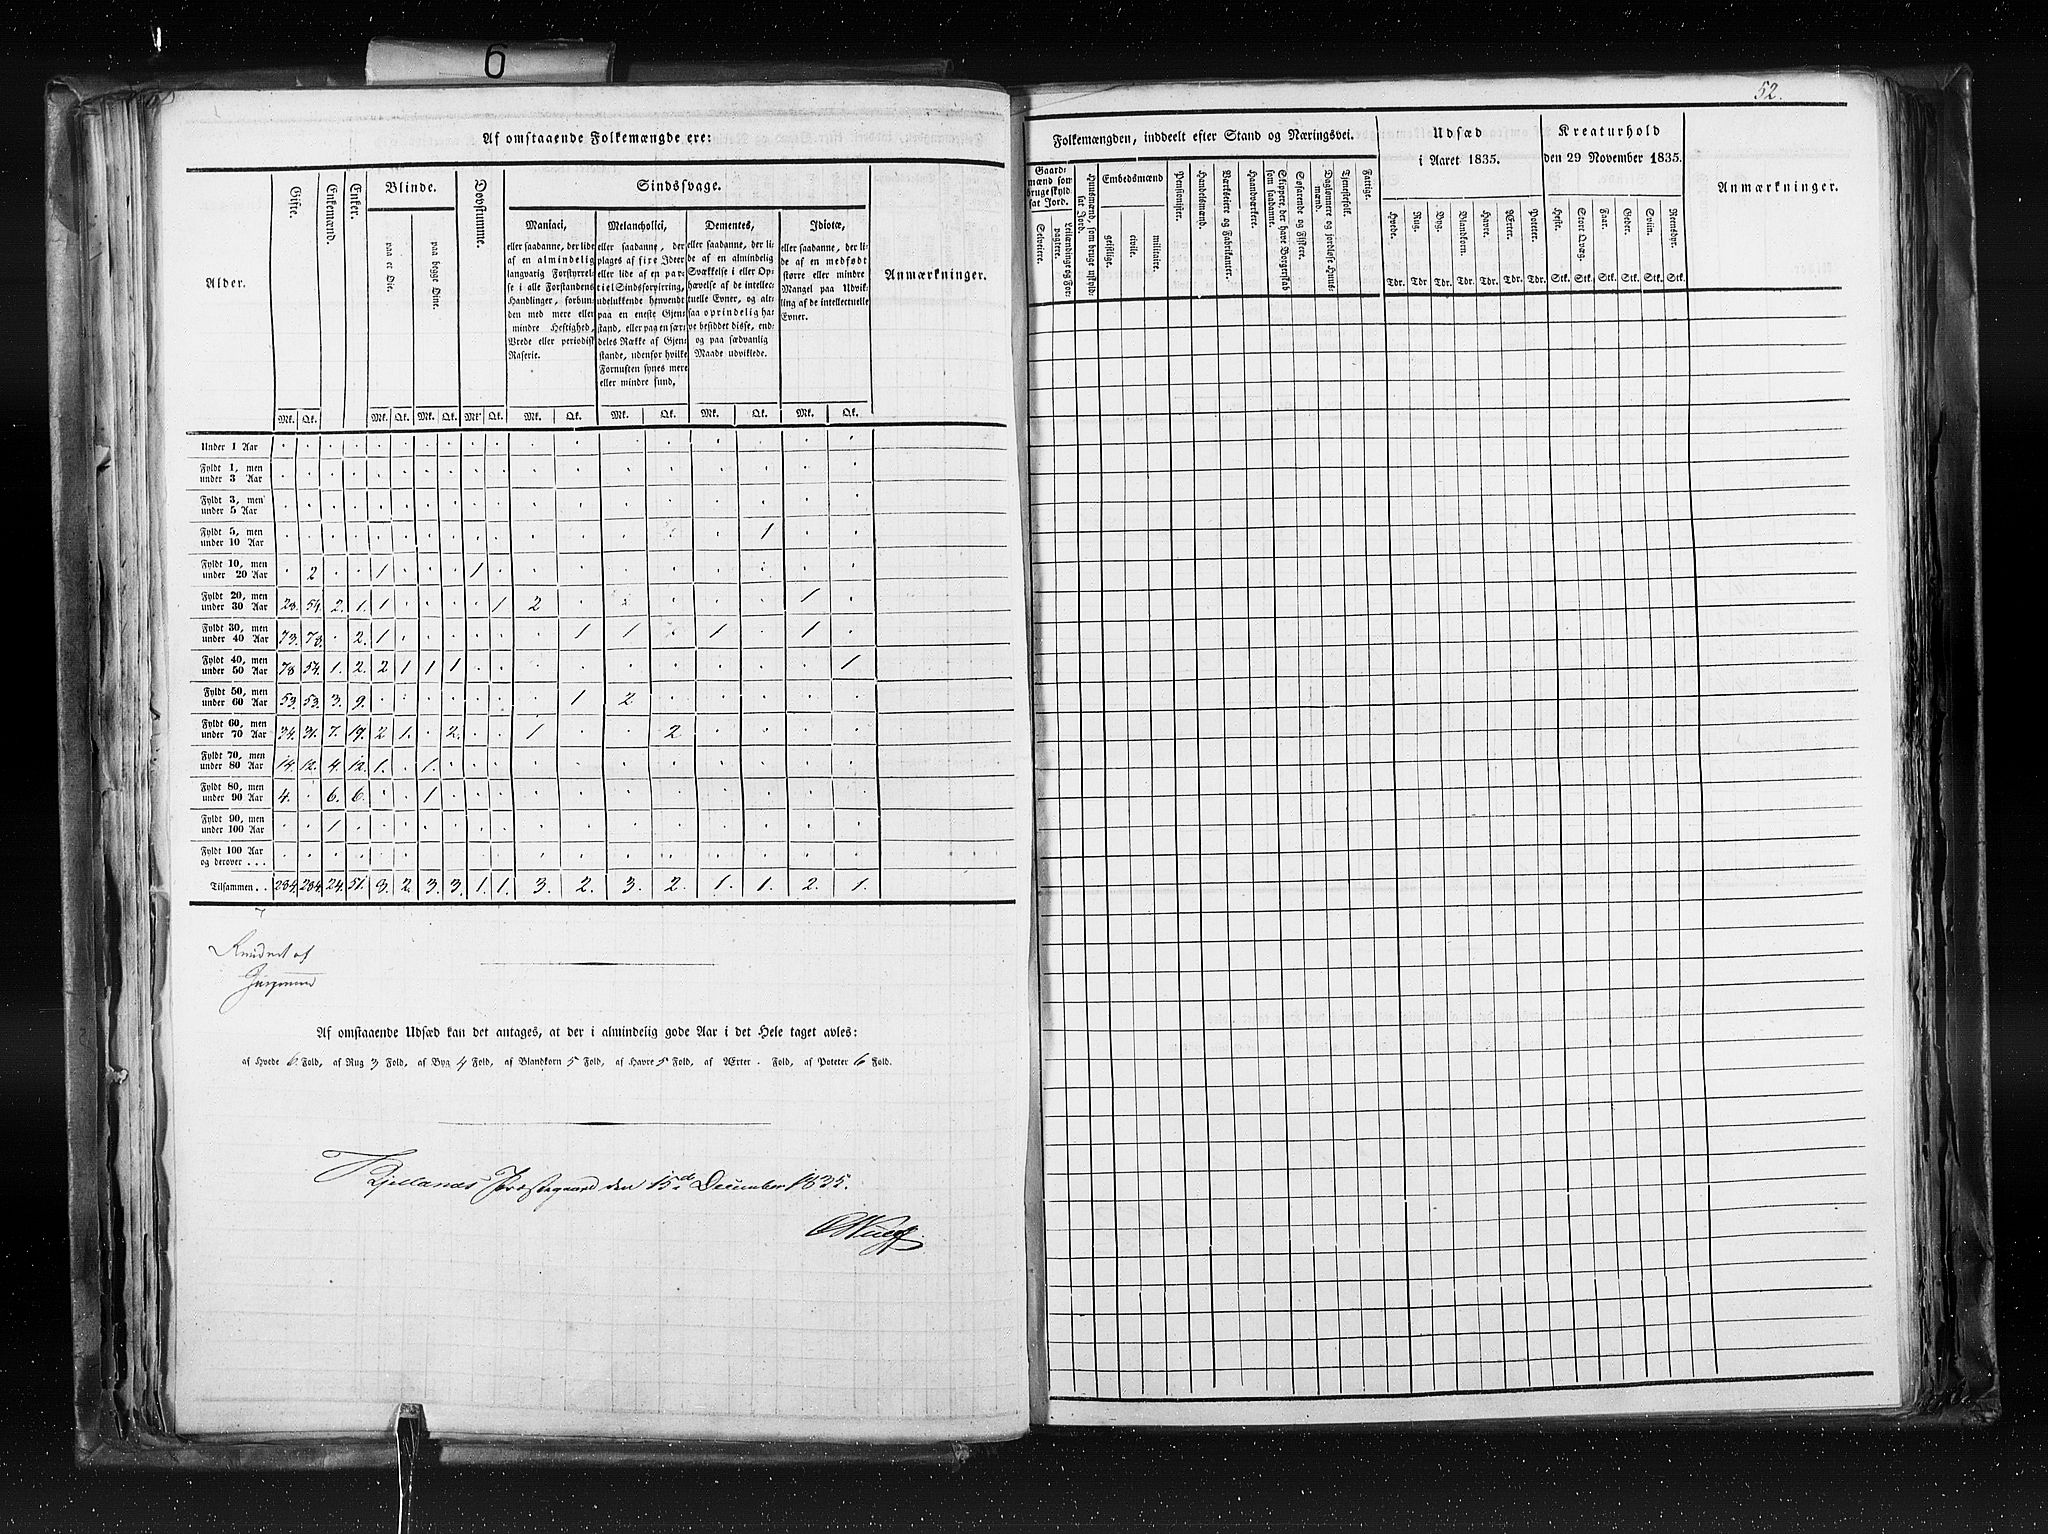 6
52.
Af omstaaende Folkemængde ere:
Alder.
Gifte.
Enkemænd.
Enker.
Blinde.
paa et Øie.
paa begge Øine.
Døvstumme.
Sindssvage.
Maniaci,
eller saadanne, der lide
af en almindelig
langvarig Forstyrrel-
se i alle Forstandens
Handlinger, forbun-
den med mere eller
mindre Heftighed,
Vrede eller periodisk
Raserie.
Melancholici,
eller saadanne, der
plages af fixe Ideer
eller lide af en par-
tiel Sindsforvirring,
udelukkende henvendt
paa en eneste Gjen-
stand, eller pag en sær-
deles Række af Gjen-
stande, udenfor hvilke
Fornuften synes mere
eller mindre sund,
Dementes,
eller saadanne, der li-
de af en almindelig
Svækkelse i eller Op-
hævelse af de intellec-
tuelle Evner, og alt-
saa oprindelig ha-
ve besiddet disse, end-
og paa sædvanlig
Maade udviklede.
Idiotæ,
eller saadanne, der li-
de af en medfødt
større eller mindre
Mangel paa Udvik-
ling af de intellectuelle
Evner.
Anmærkninger.
Mk. Qk. Mk. Qk. Mk. Qk. Mk. Qk. Mk. Qk. Mk. Qk. Mk. Qk. Mk. Qk.
Under 1 Aar
Fyldt 1, men
under 3 Aar
Fyldt 3, men
under 5 Aar
Fyldt 5, men
under 10 Aar 1
Fyldt 10, men
under 20 Aar 2 1 1
Fyldt 20, men
under 30 Aar 28. 54. 2. 1. 1 1 2 1
Fyldt 30, men
under 40 Aar 73. 78. 2. 1 1 1 1 1
Fyldt 40, men
under 50 Aar 78 54. 1. 2. 2 1 1 1 1
Fyldt 50, men
under 60 Aar 53. 53. 3. 9. 1 2
Fyldt 60, men
under 70 Aar 34. 31. 7. 19. 2 1. 2. 1 2
Fyldt 70, men
under 80 Aar 14. 12. 4. 12. 1. 1.
Fyldt 80, men
under 90 Aar 4. 6. 6. 1
Fyldt 90, men
under 100 Aar 1
Fyldt 100 Aar
og derover . . .
Tilsammen . . 284. 284. 24. 51. 3. 2. 3. 3. 1. 1. 3. 2. 3. 2. 1. 1. 2. 1.
af
Af omstaaende Udsæd kan det antages, at der i almindelig gode Aar i det Hele taget avles:
af Hvede 6 Fold, af Rug 3 Fold, af Byg 4 Fold, af Blandkorn 5 Fold, af Havre 5 Fold, af Ærter . Fold, af Poteter 6 Fold.
Præstegaard den 15de December 1835.
Folkemængden, inddeelt efter Stand og Næringsvei.
Gaard-
mænd som
bruge skyld-
sat Jord.
Selveiere.
Leilændinge og For-
pagtere.
Huusmænd, som bruge skyld-
sat Jord.
Embedsmænd
geistlige.
civile.
militaire.
Pensionister.
Handelsmænd.
Værkseiere og Fabrikanter.
Haandværkere.
Skippere, der have Borgerskab
som saadanne.
Søfarende og Fiskere.
Daglønnere og jordløse Huus-
mænd.
Tjenestefolk.
Fattige.
Udsæd
i Aaret 1835.
Hvede. Rug. Byg. Blandkorn. Havre. Ærter. Poteter.
Tdr. Tdr. Tdr. Tdr. Tdr. Tdr. Tdr.
Kreaturhold
den 29 November 1835.
Heste. Stort Qvæg. Faar. Geder. Sviin. Reensdyr.
Stk. Stk. Stk. Stk. Stk. Stk.
Anmærkninger.